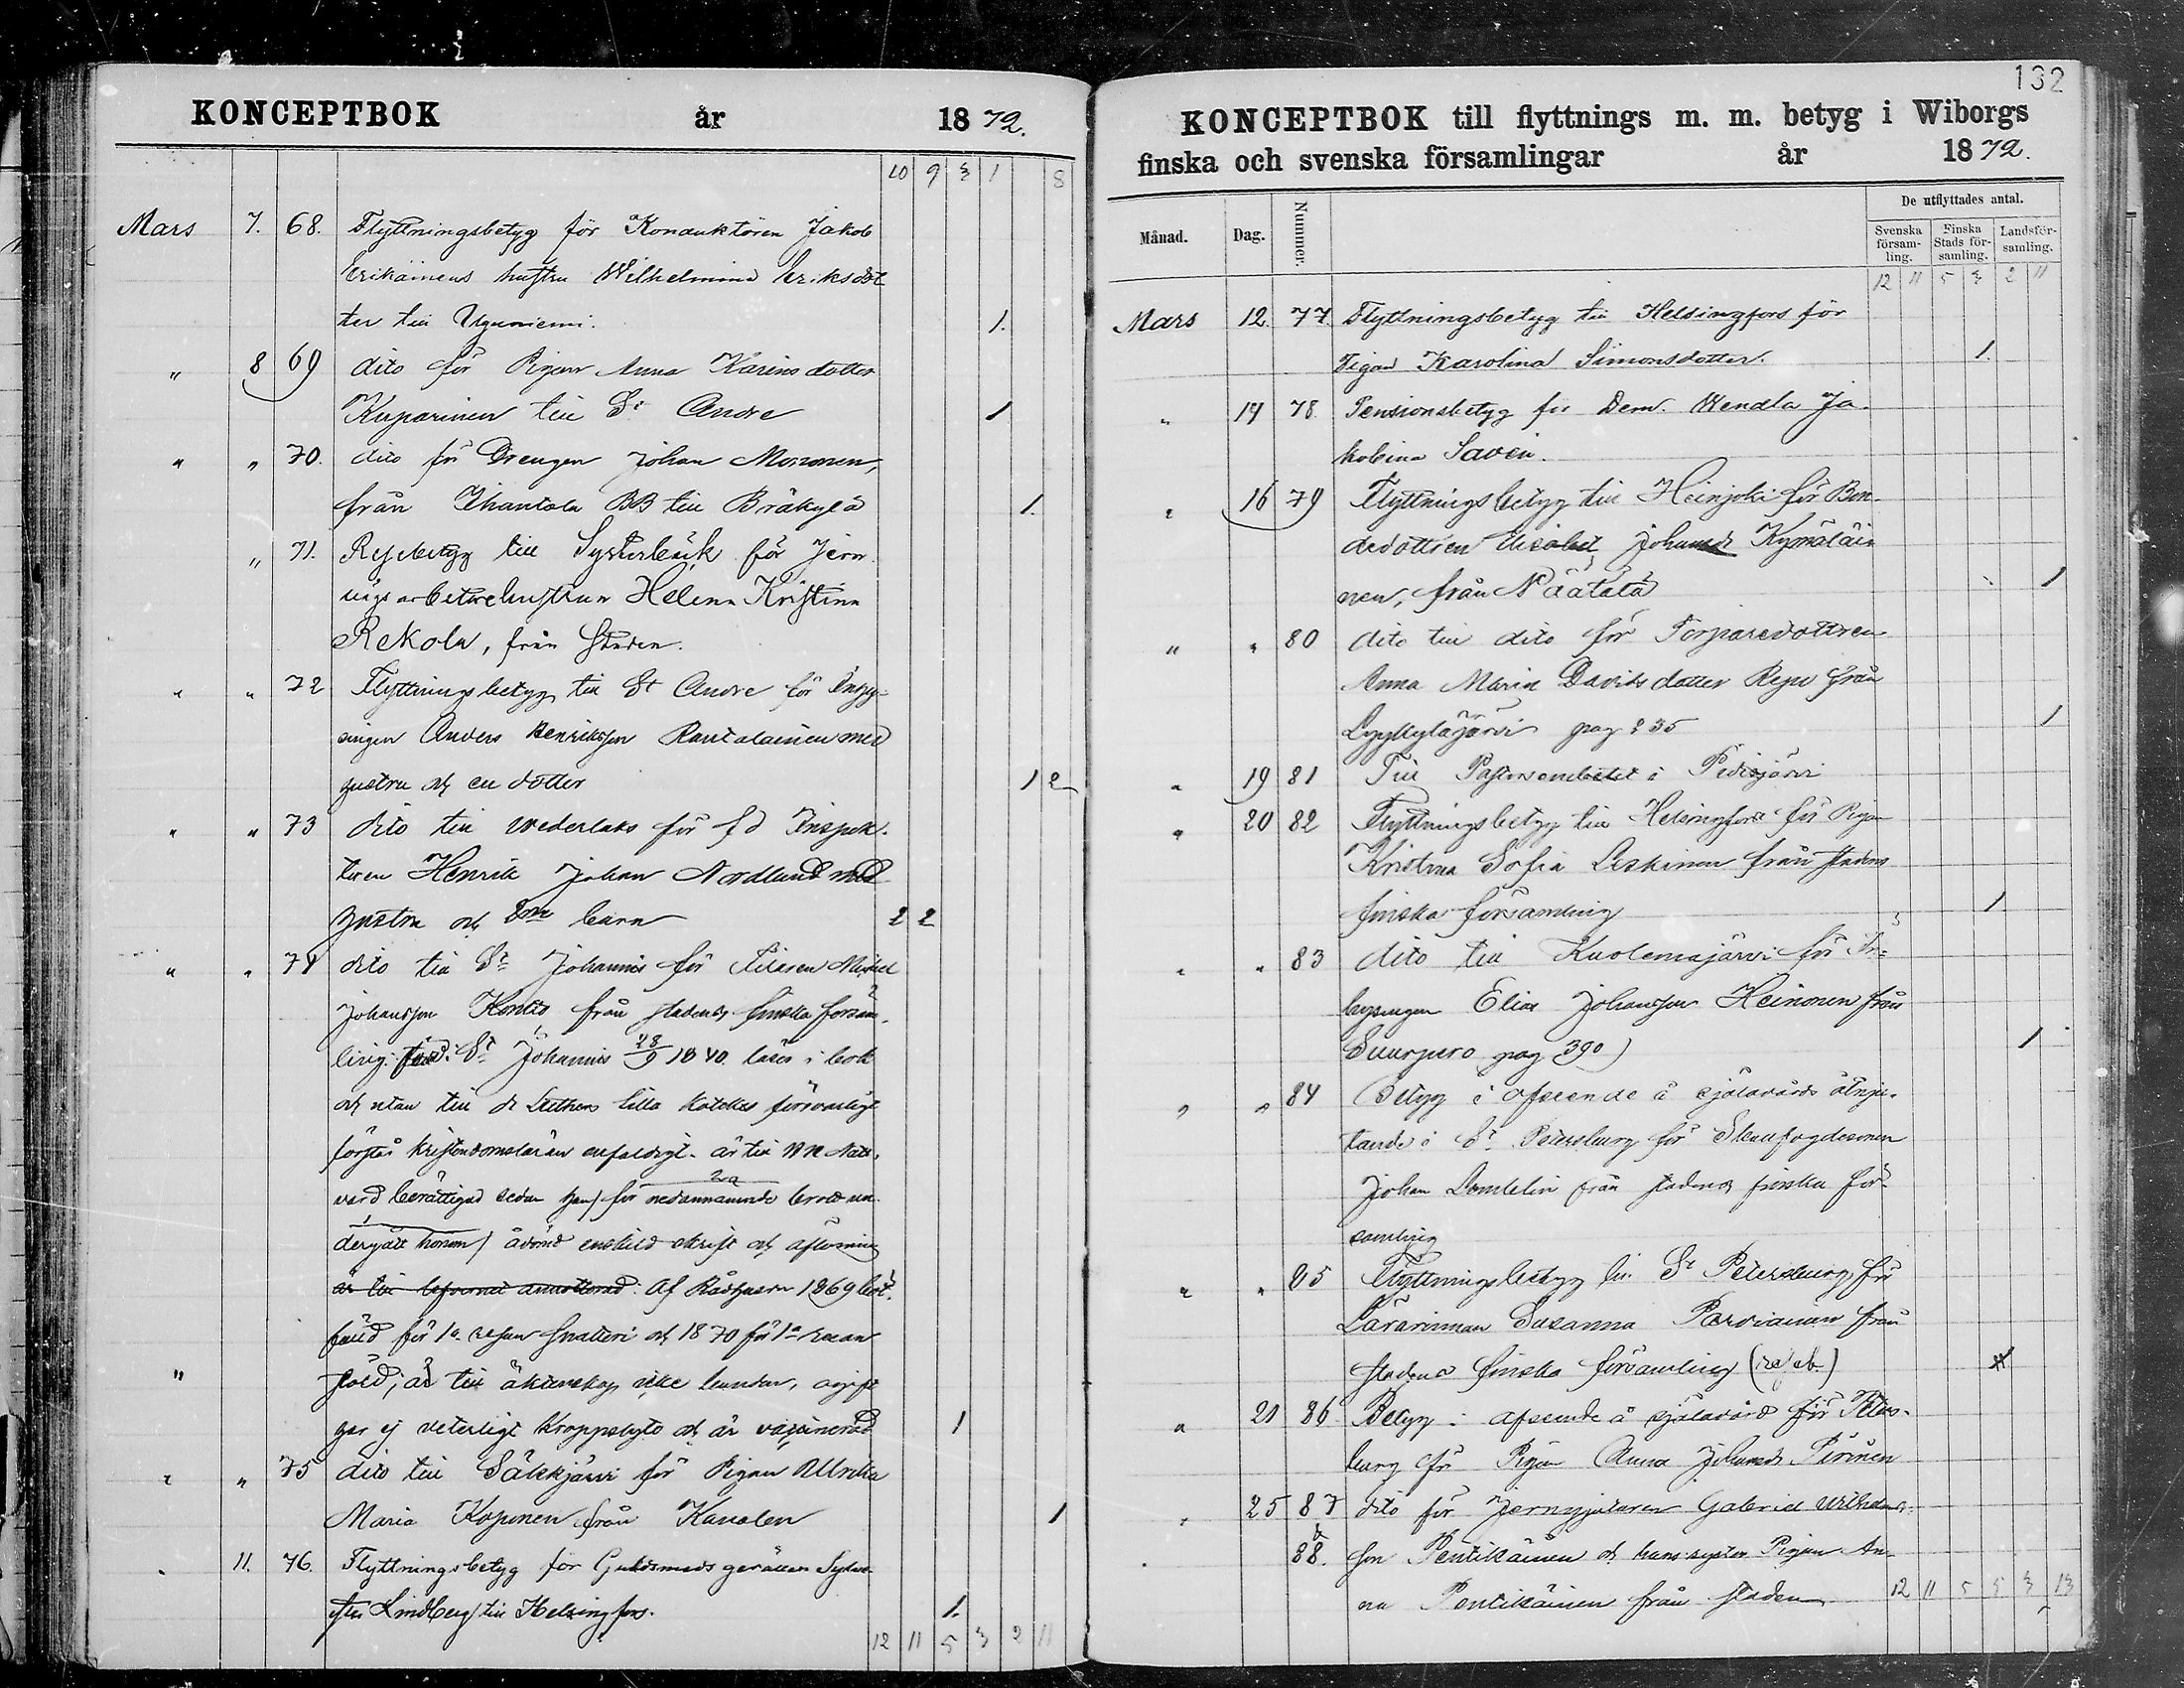 132
KONCEPTBOK år 1872.
10 9 3 1 8
Mars 7. 68. Flyttningsbetyg för Konduktören Jakob
Erikäinens hustru Wilhelmina Eriksdot
ter till Uguniemi. 1.
" 8 69 dito för Pigan Anna Karinsdotter
Kurparinen till St Andre 1
" " 70. dito för Drengen Johan Mononen,
från Ihantala BB till Bräkylä 1.
" 71. Resebetyg till Systerbäck för Jern
vägsarbetarehustrun Helena Kristina
Rekola, från Staden.
" " 72 Flyttningsbetyg till St Andre för Inhy-
singen Anders Henriksson Rautalainen med
hustru och en dotter 1 2
" " 73 dito till Wederlaks för fd Inspek-
toren Henrik Johan Nordlund med
hustru och barn 2 2
" " 74 dito till St Johannis för Filaren Mickel
Johansson Kontio från stadens finska försam-
ling. född i St Johannis 28/9 1840. läser i bok
och utan till dr Luthers lilla katekes försvarligt
förstår kristendomsläran enfaldigt. är till HH Natt-
vard berättigad sedan han för nedannämnde brott un-
dergått honom ådömd enskild skrift och aflösning
är till lefvernet annotterad. Af Rådhusrn 1869 bot-
fäld för 1a resan snatteri och 1870 för 1a resan
stöld; är till äktenskap icke bunden, avgift
" har ej veterligt kroppslyte och är vaccinerad 1
" " 75 dito till Säkkjärvi för Pigan Ulrika
Maria Koponen från Kanalen 1
" 11. 76. Flyttningsbetyg för Guldsmedsgesällen Sylve-
ster Lindberg till Helsingfors. 1.
12 11 5 3 2 11
KONCEPTBOK till flyttnings m. m. betyg i Wiborgs
finska och svenska församlingar år 1872.
Månad. Dag. Nummer. De utflyttades antal.
Svenska församling. Finska Stads församling. Landsförsamling.
12 11 5 3 2 11
Mars 12 77 Flyttningsbetyg till Helsingfors för
Pigan Karolina Simonsdotter. 1.
" 14 78. Pensionsbetyg för Dem. Wendla Ja-
kobina Saven.
" 16 79 Flyttningsbetyg till Heinjoki för Bon-
dedottren Elisabet Johansdr Kymäläi
nen, från Näätälä 1
" " 80 dito till dito för Torparedottren
Anna Maria Davidsdotter Repo från
Lyykyläjärvi pag 235 1
" 19 81 Till Pastorsembetet i Pedisjärvi
" 20 82 Flyttningsbetyg till Helsingfors för Pigan
Kristina Sofia Leskinen från stadens
finska församling 1
" " 83 dito till Kuolemajärvi för In-
hysingen Elias Johansson Heinonen från
Suurpero pag 390) 1
" " 84 Betyg i afseende å själavårds åtnju-
tande i St Petersburg för Skallfogdesonen
Johan Lomlelin från stadens finska för-
samling
" " 85 Flyttningsbetyg till St Petersburg för
Lärarinnan Susanna Parviainen från
stadens finska församling
" 21 86 Betyg i afseende å själavård för Peters-
burg för Pigan Anna Johansdr Pirinen
" 25 87 dito för Jerngjutaren Gabriel Wilhelms-
& 88. son Pentikäinen och hans syster Pigan An-
na Pentikäinen från staden 12 11 5 5 3 13